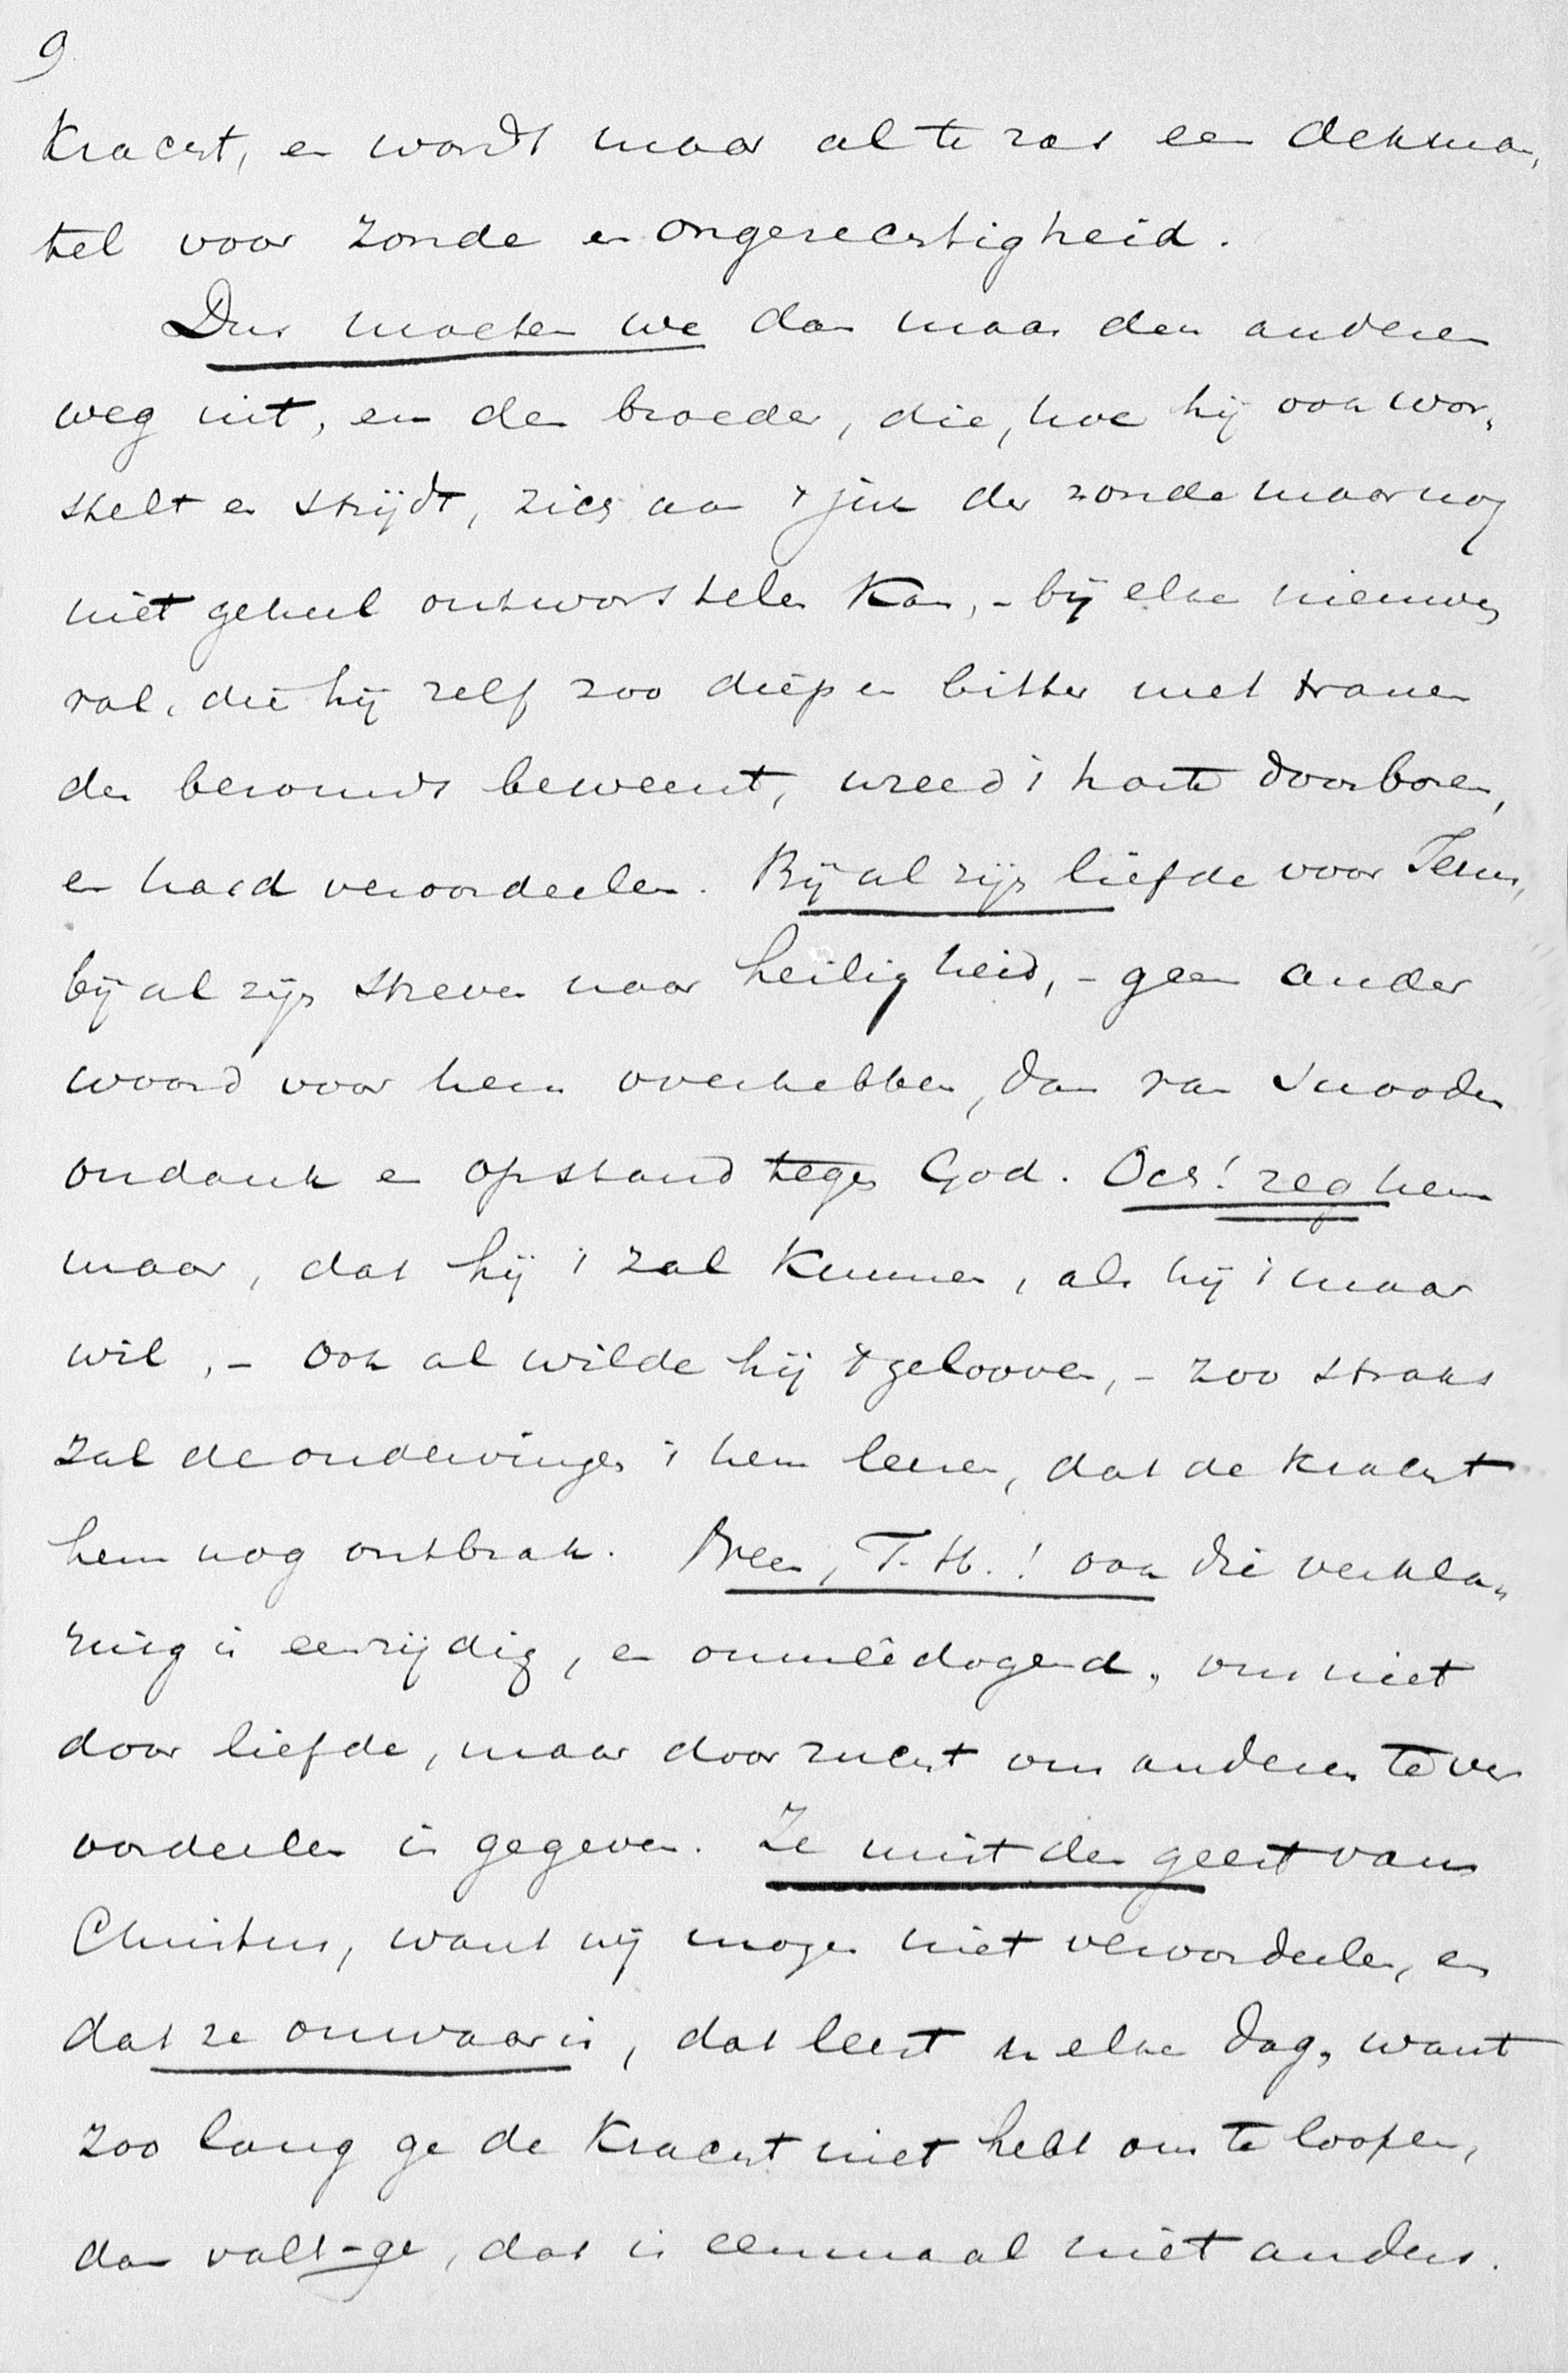 9
Kracht, en wordt maar al te ras een dekman„
tel voor zonde en ongerechtigheid.
Dus moeten we dan maar den anderen
weg uit, en den broeder, die, hoe hij ook wor„
stelt en strijdt, zich aan 't juk der zonde maar nog
niet geheel ontworstelen kan, – bij elken nieuwen
val, die hij zelf zoo diep en bitter met tranen
des berouws beweent, wreed 't harte doorboren,
en hard veroordeelen. Bij al zijn liefde voor Jezus,
bij al zijn streven naar heiligheid, – geen ander
woord voor hem overhebben, dan van snooden
ondank en opstand tegen God. Och! zeg hem
maar, dat hij 't zal kunnen, als hij 't maar
wil, – ook al wilde hij 't gelooven, – zoo straks
zal de ondervinding 't hem leeren, dat de kracht
hem nog ontbrak. Neen, T. H.! ook die verkla„
ring is eenzijdig, en onmeêdogend, om niet
door liefde, maar door zucht om anderen te ver
oordeelen in gegeven. Ze mist den geest van
Christus, want wij mogen niet veroordeelen, en
dat ze onwaar is, dat leert u elke dag, want
zoo lang ge de kracht niet hebt om te loopen,
dan valt-ge, dat is eenmaal niet anders.